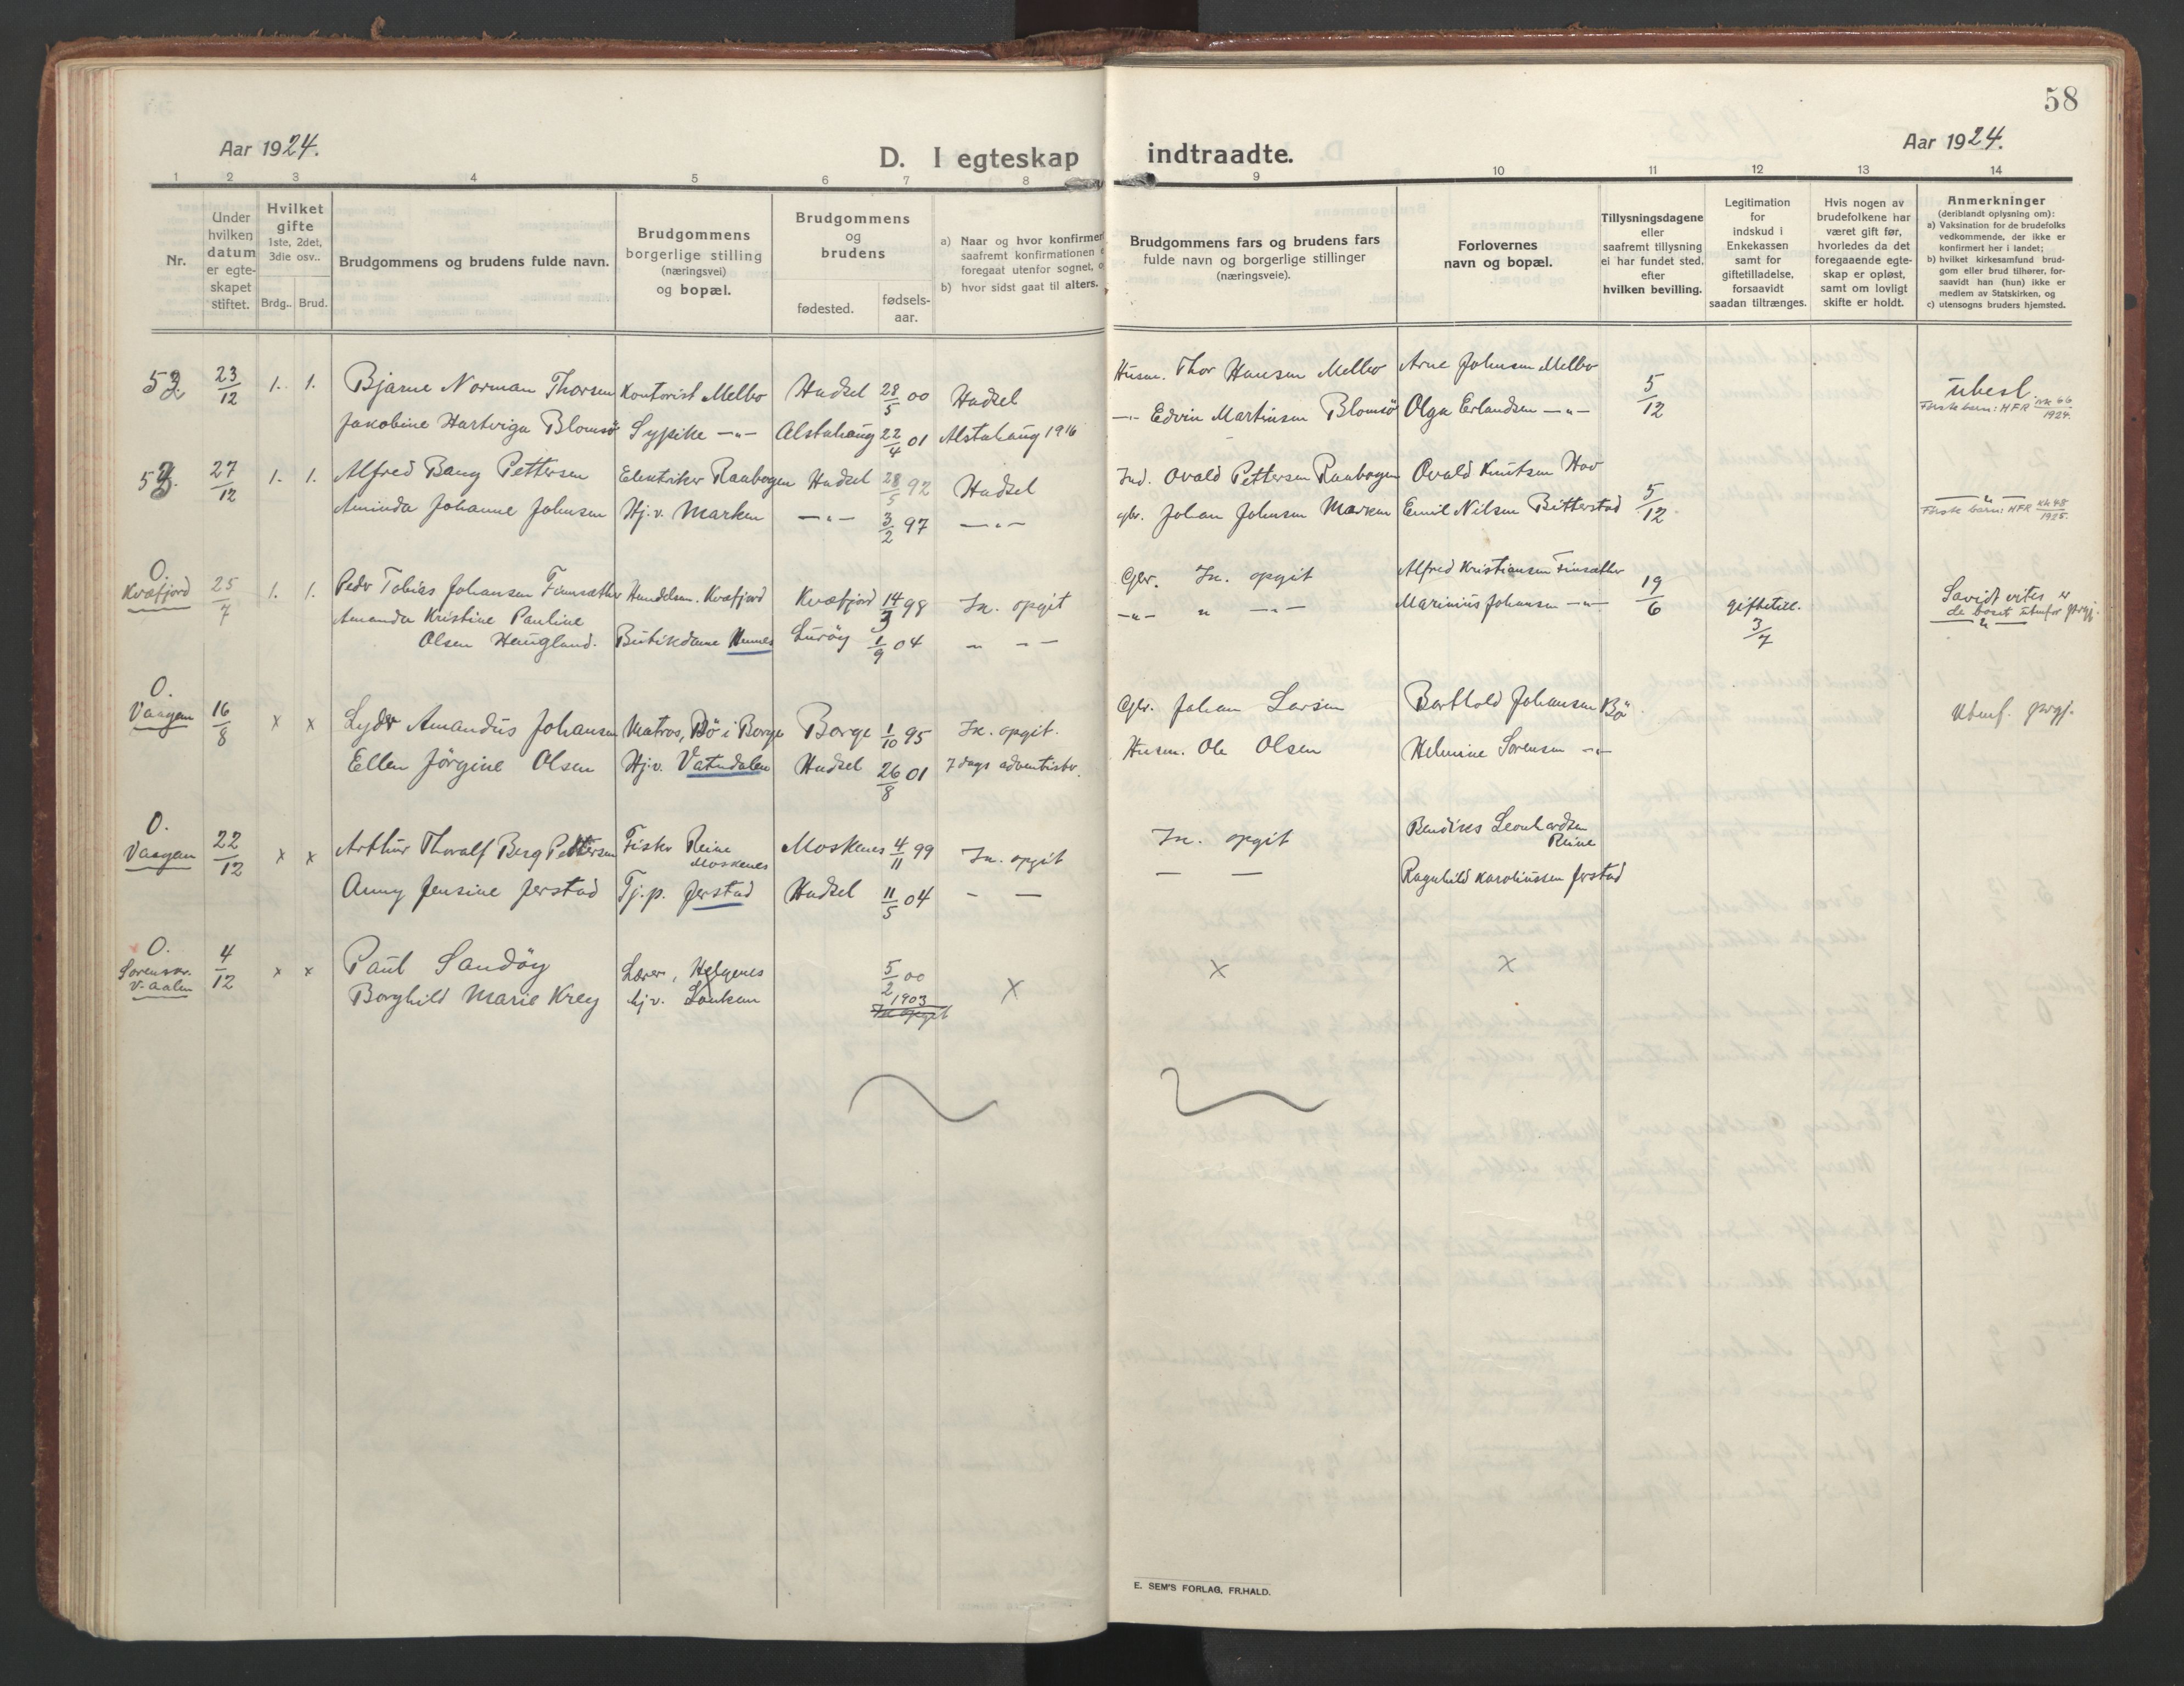 58
Aar 1924.
D. I egteskap indtraadte.
Aar 1924.
1 2 3 4 5 6 7 8 9 10 11 12 13 14
Nr.
Under hvilken datum er egte-skapet stiftet.
Hvilket gifte 1ste, 2det, 3die osv..
Brdg.. Brud.
Brudgommens og brudens fulde navn.
Brudgommens borgerlige stilling (næringsvei) og bopæl.
Brudgommens og brudens
fødested. fødsels-aar.
a) Naar og hvor konfirmer
saafremt konfirmationen
foregaat utenfor sognet, o
b) hvor sidst gaat til alters.
Brudgommens fars og brudens fars
fulde navn og borgerlige stillinger
(næringsveie).
Forlovernes
navn og bopæl.
Tillysningsdagene
eller
saafremt tillysning
ei har fundet sted,
efter
hvilken bevilling.
Legitimation
for
indskud i
Enkekassen
samt for
giftetilladelse,
forsaavidt
saadan tiltrænges.
Hvis nogen av
brudefolkene har
været gift før,
hvorledes da det
foregaaende egte-
skap er opløst,
samt om lovligt
skifte er holdt.
Anmerkninger
(deriblandt oplysning om):
a) Vaksination for de brudefolks
vedkommende, der ikke er
konfirmert her i landet;
b) hvilket kirkesamfund brud-
gom eller brud tilhører, for-
saavidt han (hun) ikke er
medlem av Statskirken, og
c) utensogns bruders hjemsted.
52. 23/12 1. 1. Bjarne Norman Thorsen Kontorist Melbo Hadsel 28/5 00 Hadsel Husm. Thor Hansen Melbo Arne Johnsen Melbo 5/12 ubesl.
Jakobine Hartviga Blomsø Sypike -"- Alstahaug 22/4 01 Alstahaug 1916 -"- Edvin Martinsen Blomsø Olga Erlandsen -"- Første barn: MFR nr. 66 1924.
53. 27/12 1. 1. Alfred Bang Pettersen Elektriker Raabogen Hadsel 28/5 92 Hadsel Ind. Ovald Pettersen Raabogen Ovald Knutsen Hov 5/12 -"-
Aminda Johanne Johnsen Hj.v. Marken -"- 3/2 97 -"- gbr. Johan Johnsen Marken Emil Nilsen Bitterstad Første barn: MFR nr. 48 1925.
O. Kvæfjord 25/7 1. 1. Peder Tobias Johansen Finnsæther Handelsm. Kvæfjord Kvæfjord 14/3 98 Ik. opgit Gbr. Ik. opgit Alfred Kristiansen Finsæther 19/6 giftetill. 3/7 Savidt vites er de boset utenfor prgj.
Amanda Kristine Pauline
Olsen Haugland. Butikdame Hennes Lurøy 1/9 04 " - - -"- " -"- Marinius Johansen -"- -"-
O. Vaagan 16/8 x x Lyder Amandus Johansen Matros, Bø i Borge Borge 1/10 95 Ik. opgit. Gbr. Johan Larsen Barthold Johansen Bø Utenf. prgj.
Ellen Jørgine Olsen Hj.v. Vatndalen Hadsel 26/8 01 7 dags adventistv. Husm. Ole Olsen Helmine Sørensen -"-
O. Vaagan 22/12 x x Arthur Thoralf Berg Pettersen Fisker Reine Moskenes Moskenes 4/11 99 Ik. opgit Ik. opgit Bendiks Leonhardsen Reine
Anny Jensine Jerstad Tj.p. Jerstad Hadsel 11/5 04 - - - - Ragnhild Karoliussen Jerstad
O. Sorenskr. V-aalen 4/12 x x Paul Sandøy Lærer, Helgenes 5/2 00 x x x
Borghild Marie Krey hj.v. Lonkan 1903
Ik opgit
E. SEM'S FORLAG, FR.HALD.